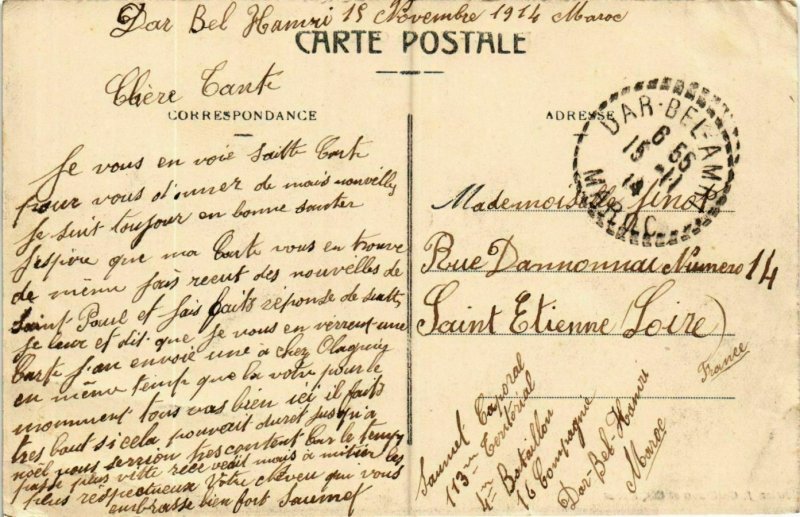 Dar Bel Hamri 15 Novembre 1914 Maroc
CARTE POSTALE
Chère Tante
CORRESPONDANCE
ADRESSE
DAR-BEL-AMRI
6 55
15 -11
14
MAROC
Je vous en voie saitte Carte
pour vous donner de mais nouvelles
Je suit toujour en bonne santer
J'espire que ma Carte vous en trouve
de même Jais recut des nouvelles de
Saint Paul et Jais faits réponse de suitte
Je leur et dit que Je vous en verrent une
Carte J'an envoie une à chez
en même temp que la votre pour le
momment tous vas bien ici il faits
tres bout si cela pouvait duret jusqu'a
noël nous serrion tres content Car le temp
passe plus vitte recevait mais à mitier les
plus réspectueux Votre cheveu qui vous
embrasse bien fort Saumet
Mademoiselle
Rue Numero 14
Saint Etienne (Loire)
France
Saumet Caporal
113me Teritorial
4me Bataillon
16 Compagnie
Dar Bel Hamri
Maroc